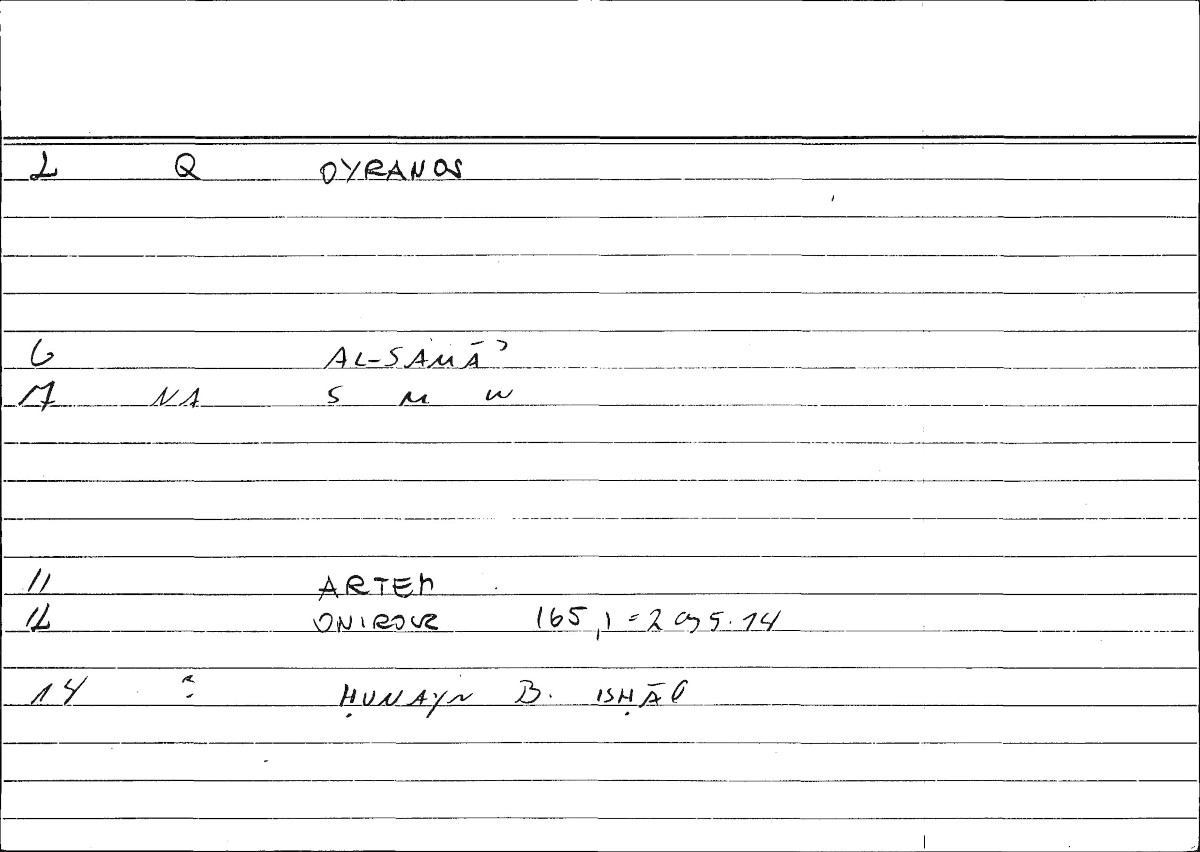 2 Q OYRANOS
6 AL-SAMĀʾ
7 NA S M W
11 ARTEM
12 ONIROCR 165,1 = 2 095.14
14 ? ḤUNAYN B. ISḤĀQ